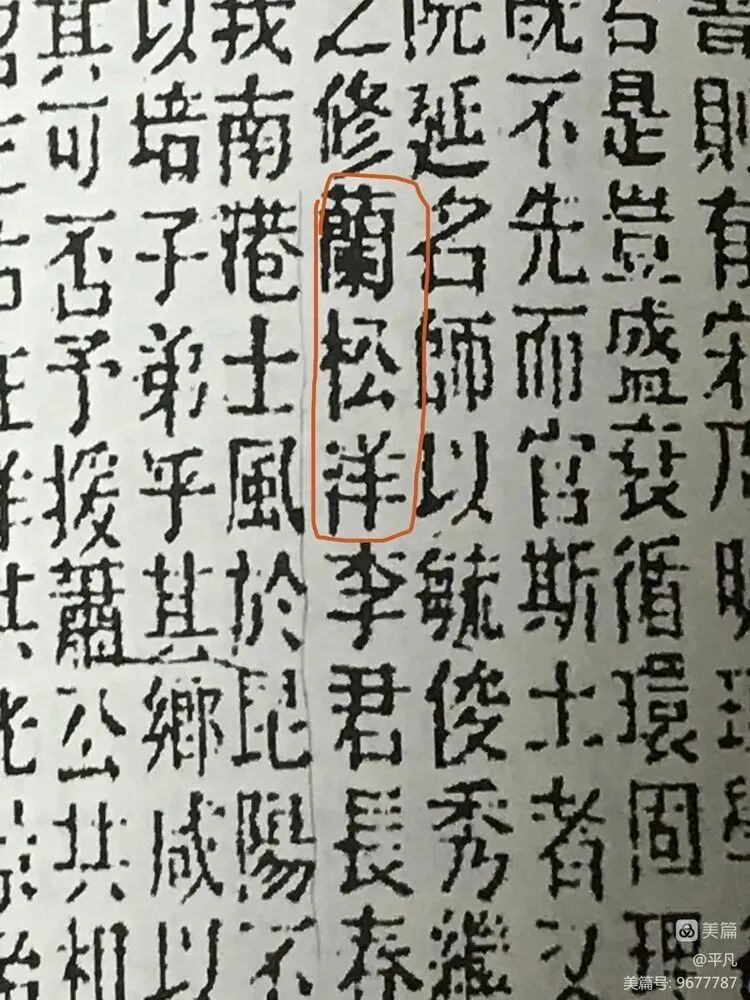 則有宋乃明
是豈盛衰循環固理
既不先而官斯土者
院延名師以毓俊秀
之修蘭松洋李君長春
我南港士風於昆陽不
以培子弟乎其鄉咸以
其可否予援蕭公共相
美篇
@平凡
美篇号: 9677787